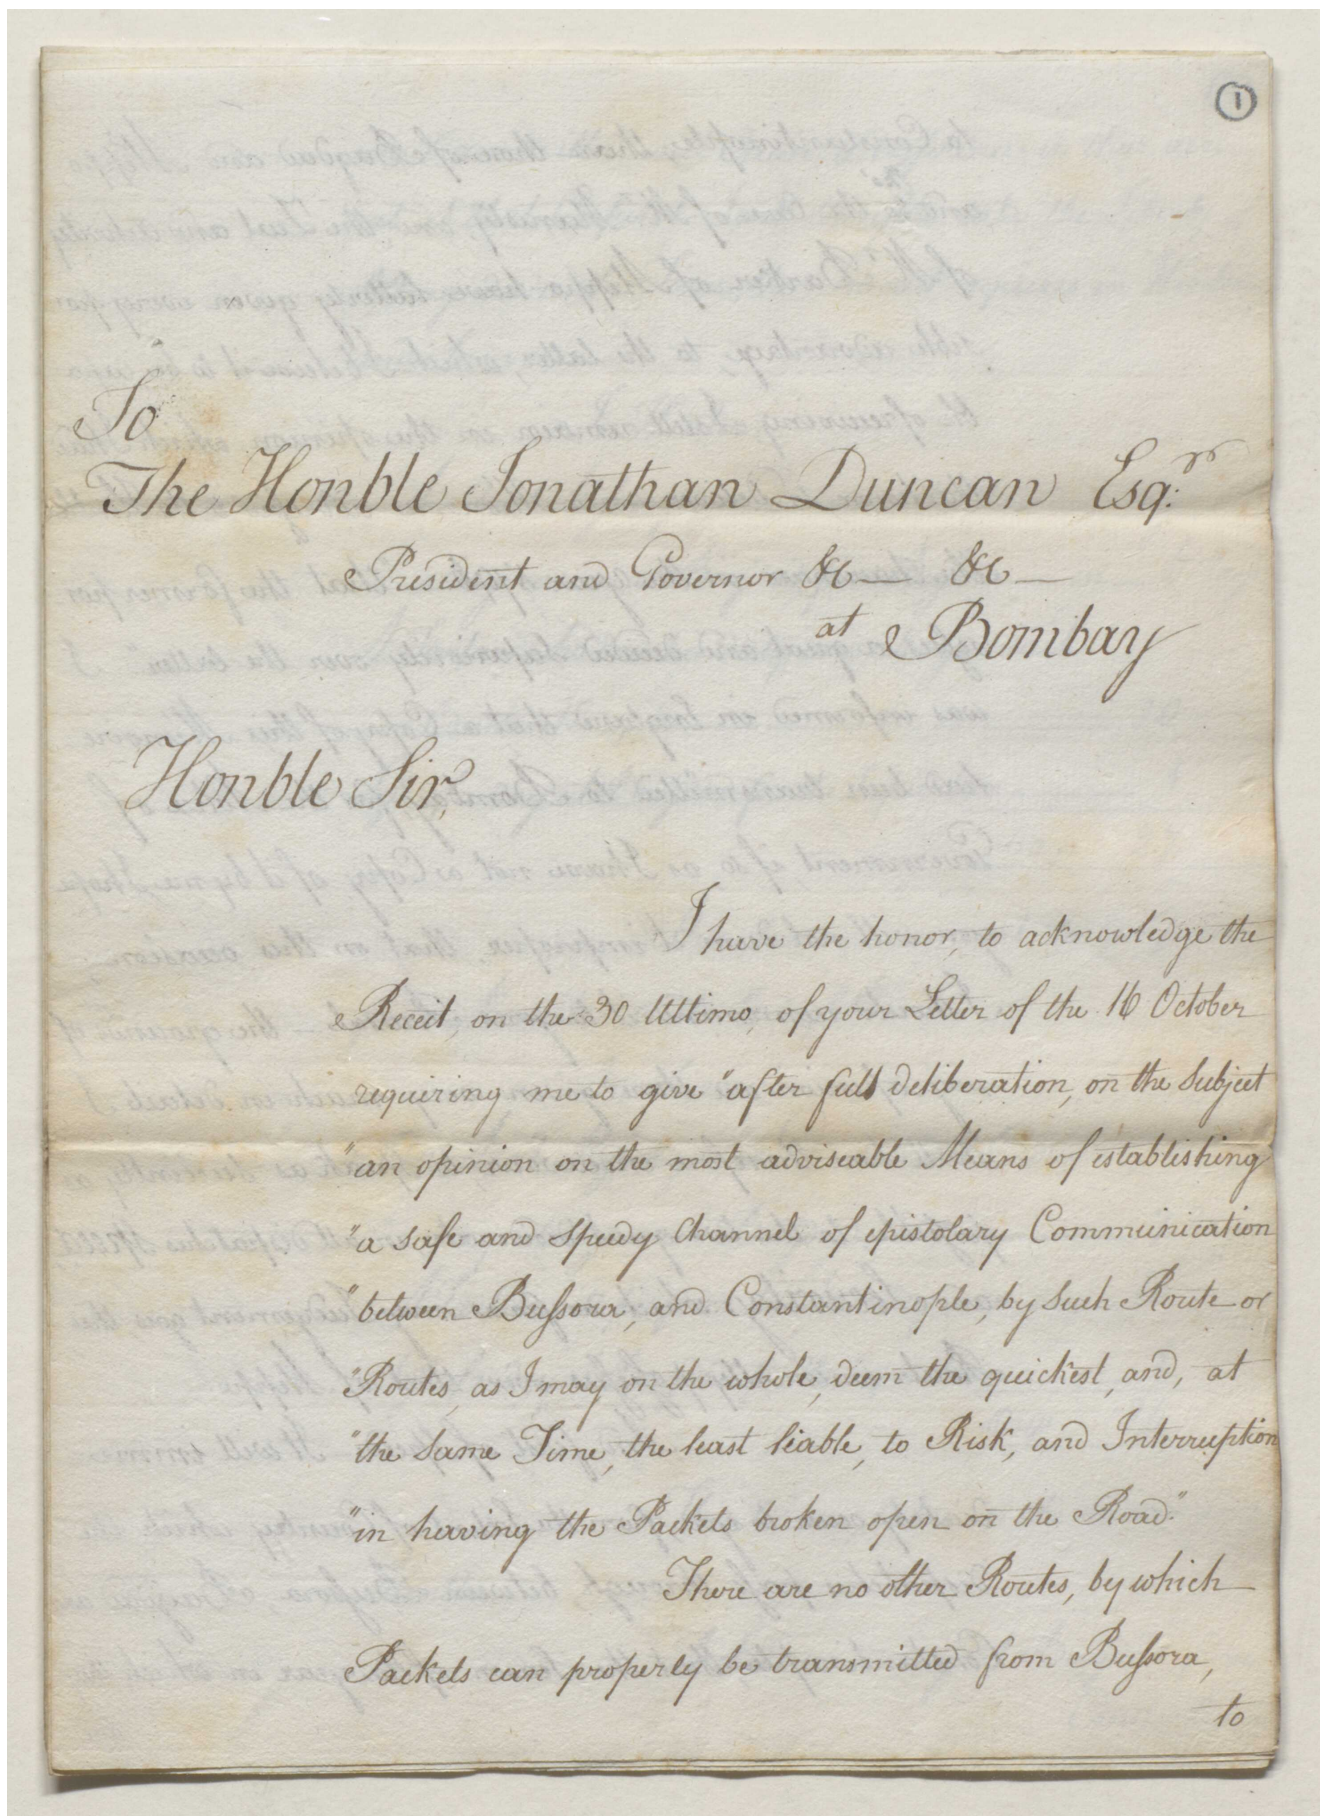 1
To
The Honble Jonathan Duncan Esqr.
President and Governor &c — &c —
at Bombay
Honble Sir,
I have the honor, to acknowledge the
Receit, on the 30 Ultimo, of your Letter of the 16 October
requiring me to give "after full deliberation, on the subject
"an opinion on the most adviseable Means of establishing
"a safe and speedy Channel of epistolary Communication
"between Bussora, and Constantinople, by such Route or
"Routes, as I may on the whole, deem the quickest, and, at
"the same Time, the least liable, to Risk, and Interruption
"in having the Packets broken open on the Road."
There are no other Routes, by which
Packets can properly be transmitted from Bussora,
to